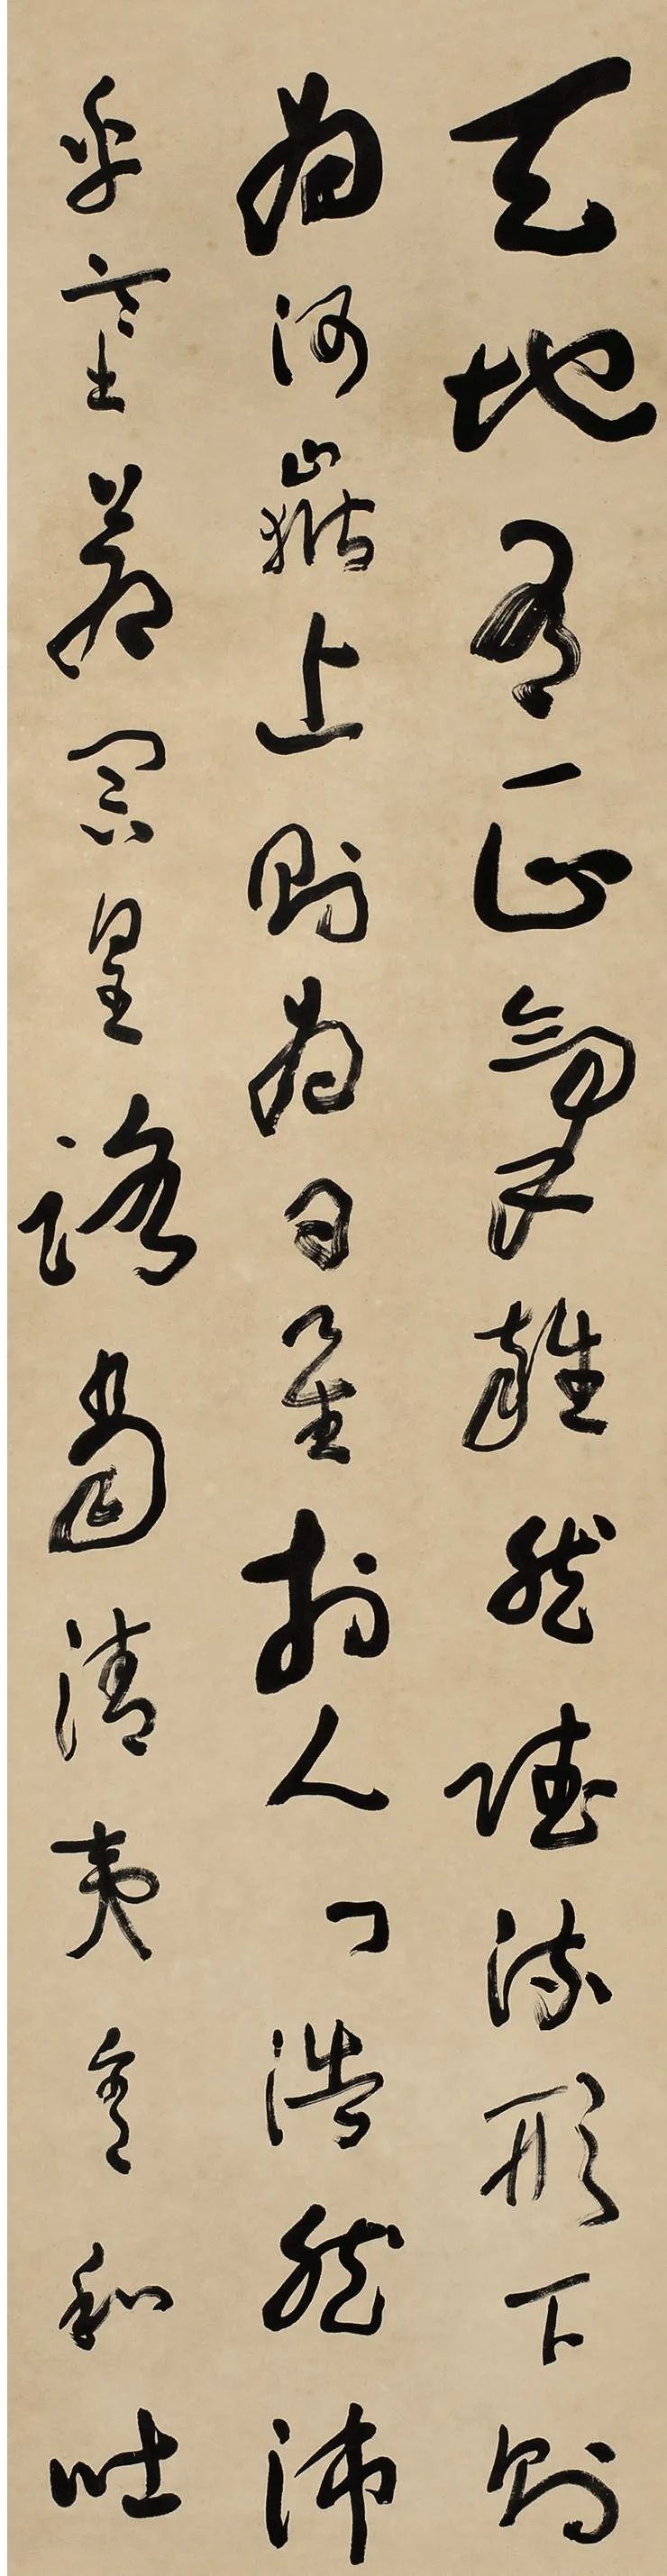 天地有正氣雜然賦流形下則
為河嶽上則為日星於人曰浩然沛
乎塞蒼冥皇路當清夷含和吐